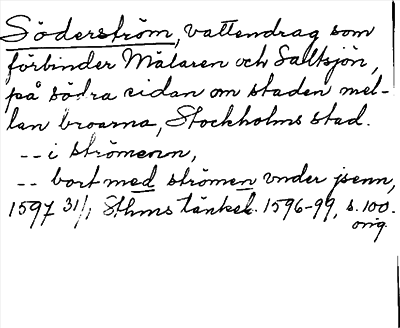 Söderström, vattendrag som
förbinder Mälaren och Saltsjön,
på södra sidan om staden mel-
lan broarna, Stockholms stad.
-- i strömenn,
-- bort med strömen vnder jsenn,
1597 31/1 Sthms tänkeb. 1596-99, s. 100.
orig.